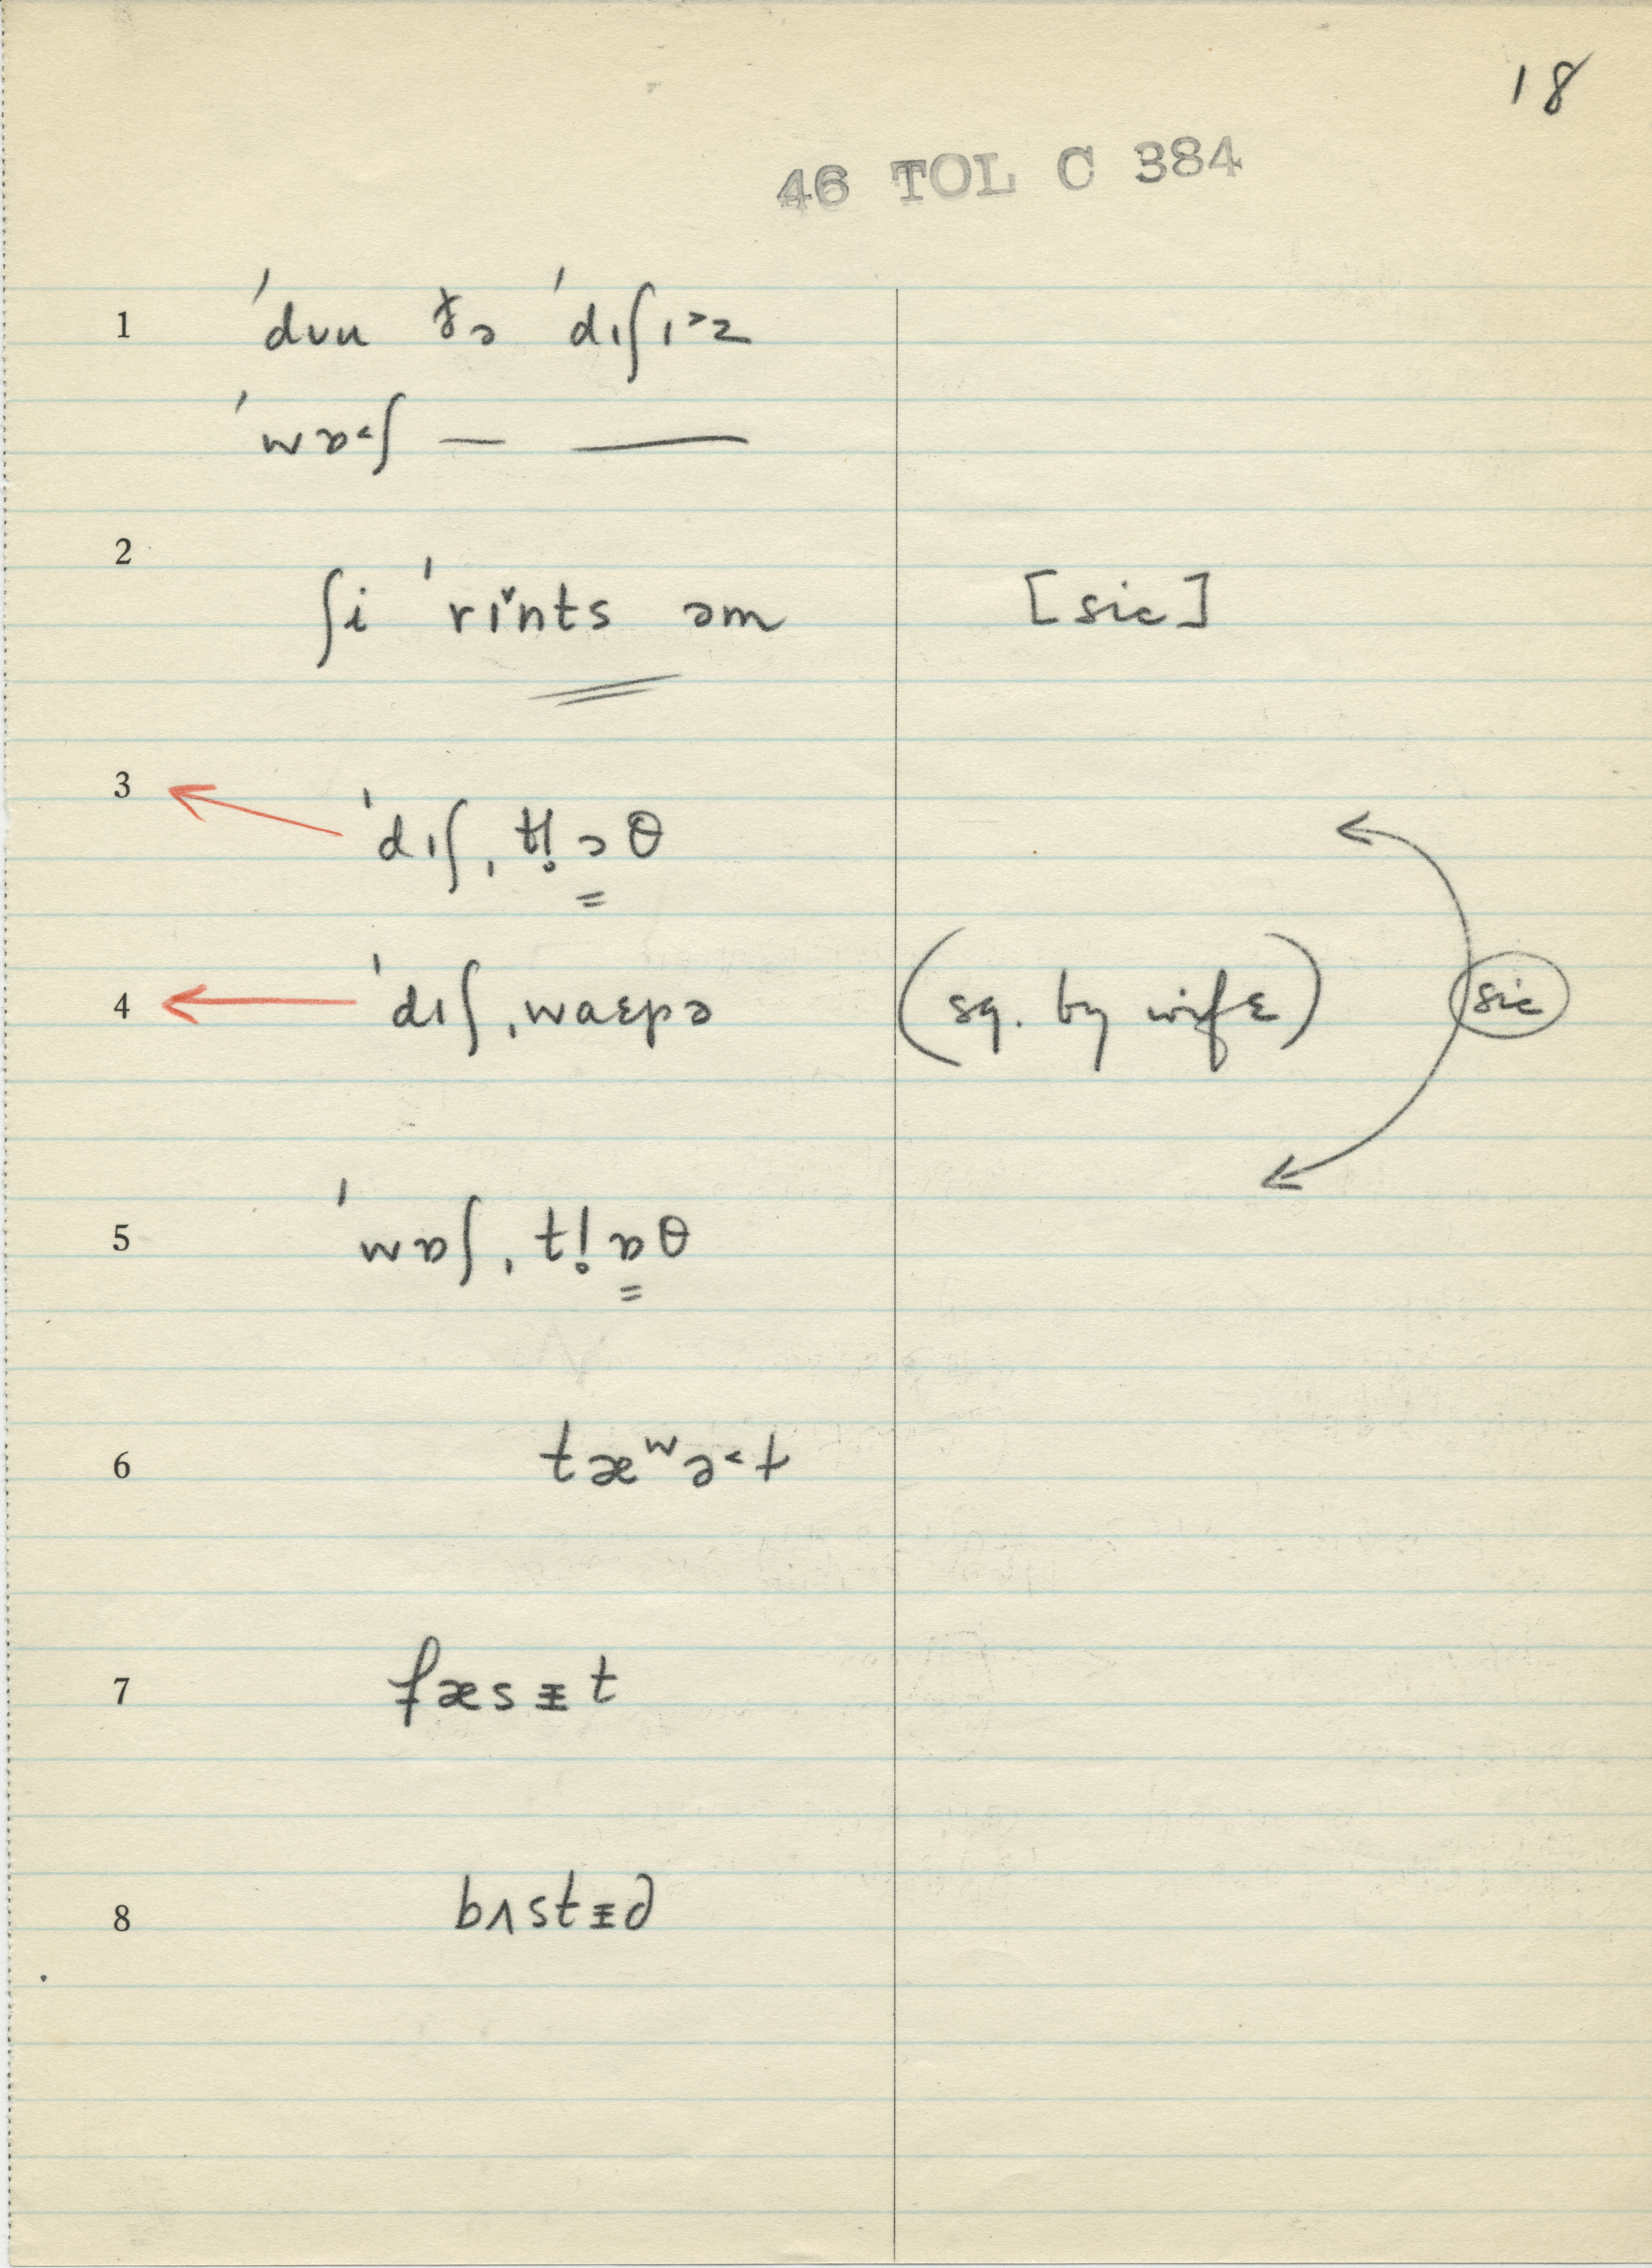 18
46 TOL C 384
1 ˈdʊu ðə ˈdɪʃɪ˃z
ˈwɒ˂ʃ — ——
2 ʃi ˈrɪ̌nts əm [sic]
3 ˈdɪʃˌtl̥ɔθ
4 ˈdɪʃˌwaɛpə (sq. by wife) sic
5 ˈwɒʃˌtl̥ɒθ
6 tæʷə˂t
7 fæsᵻt
8 bʌstᵻd